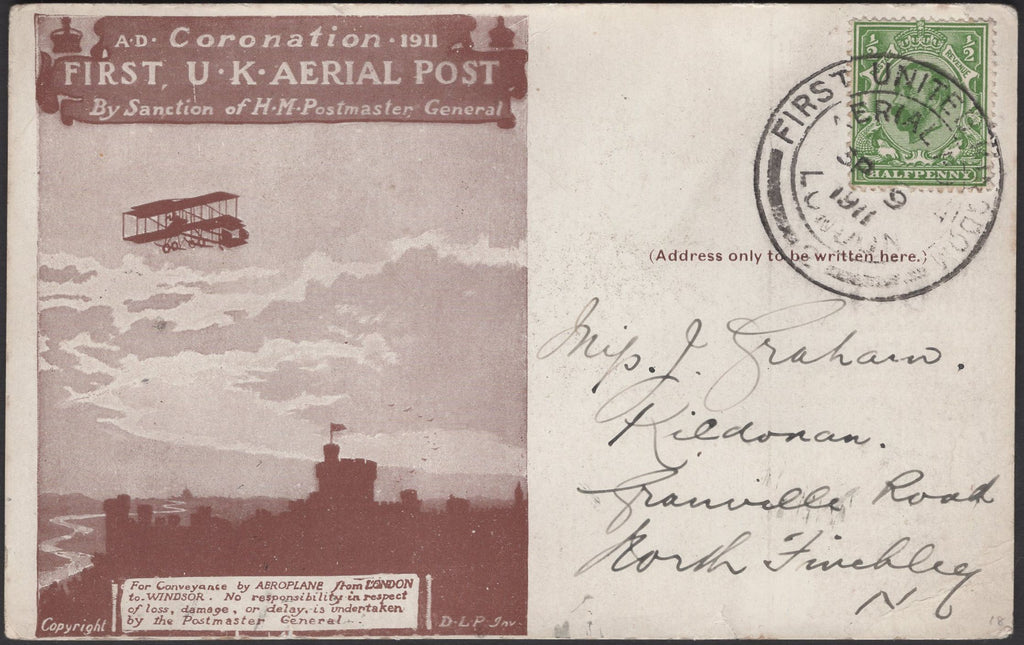 A·D· Coronation · 1911
FIRST, U·K·AERIAL POST
By Sanction of H·M·Postmaster General
For Conveyance by AEROPLANE from LONDON
to WINDSOR. No responsibility in respect
of loss, damage, or delay, is undertaken
by the Postmaster General.
Copyright
D·L·P·Inv.
½
½
REVENUE
HALFPENNY
FIRST UNITED
AERIAL
SP 9
1911
LONDON
(Address only to be written here.)
Miss. J. Graham.
Kildonan.
Granville Road
North Finchley
N
18